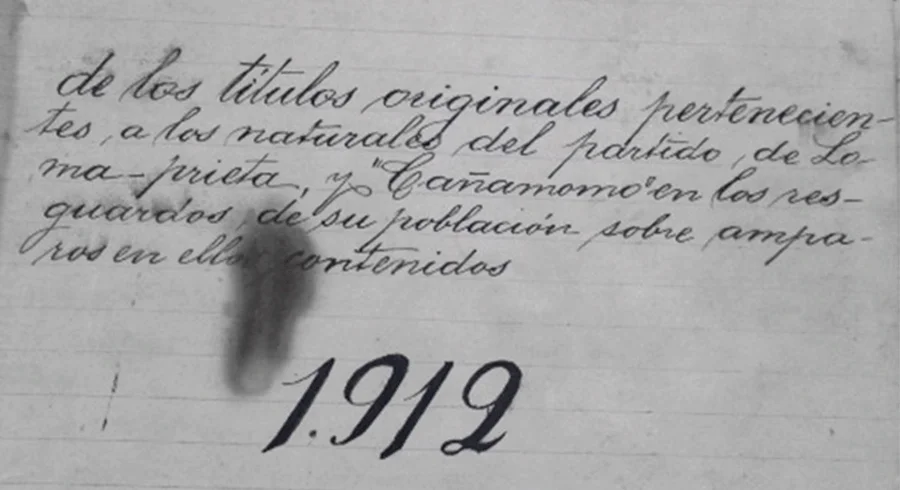 de los títulos originales pertenecien-
tes, a los naturales del partido, de Lo-
ma-prieta, y "Cañamomo" en los res-
guardos, de su población sobre ampa-
ros en ellos contenidos
1.912